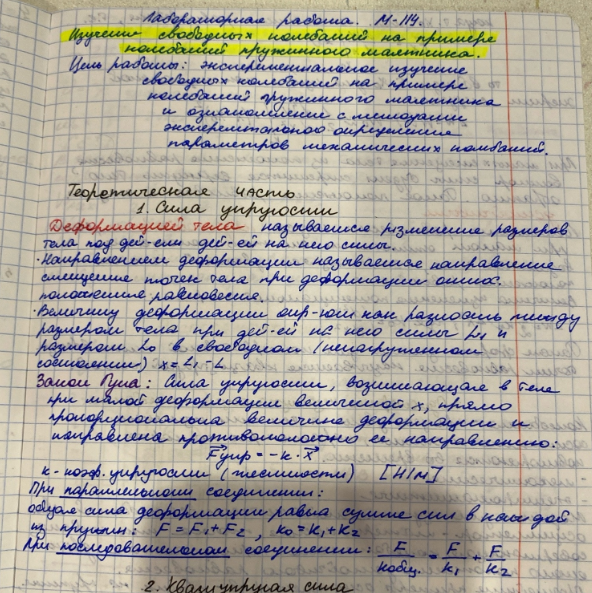 Лабораторная работа. М-114.
Изучение свободных колебаний на примере
колебаний пружинного маятника.
Цель работы: экспериментальное изучение
свободных колебаний на примере
колебаний пружинного маятника
и ознакомление с методами
эксперементального определения
параметров механических колебаний.
Теоретическая часть
1. Сила упругости
Деформацией тела называется изменение размеров
тела под дей-ем дей-ей на него силы.
· Направлением деформации называется направление
смещение точек тела при деформации относ.
положение равновесия.
· Величину деформации опр-ют как разность между
размером тела при дей-ей на него силы L₁ и
размером L₀ в свободном (ненагруженном
состоянии) x = L₁ - L
Закон Гука: Сила упругости, возникающая в теле
при малой деформации величиной x, прямо
пропорциональна величине деформации и
направлена противоположно ее направлению:
F⃗упр = -k · x⃗
k - коэф. упругости (жесткости) [Н/м]
При параллельном соединении:
общая сила деформации равна сумме сил в каждой
из пружин: F = F₁ + F₂, k₀ = k₁ + k₂
При последовательном соединении: F/kобщ. = F/k₁ + F/k₂
2. Квазиупругая сила